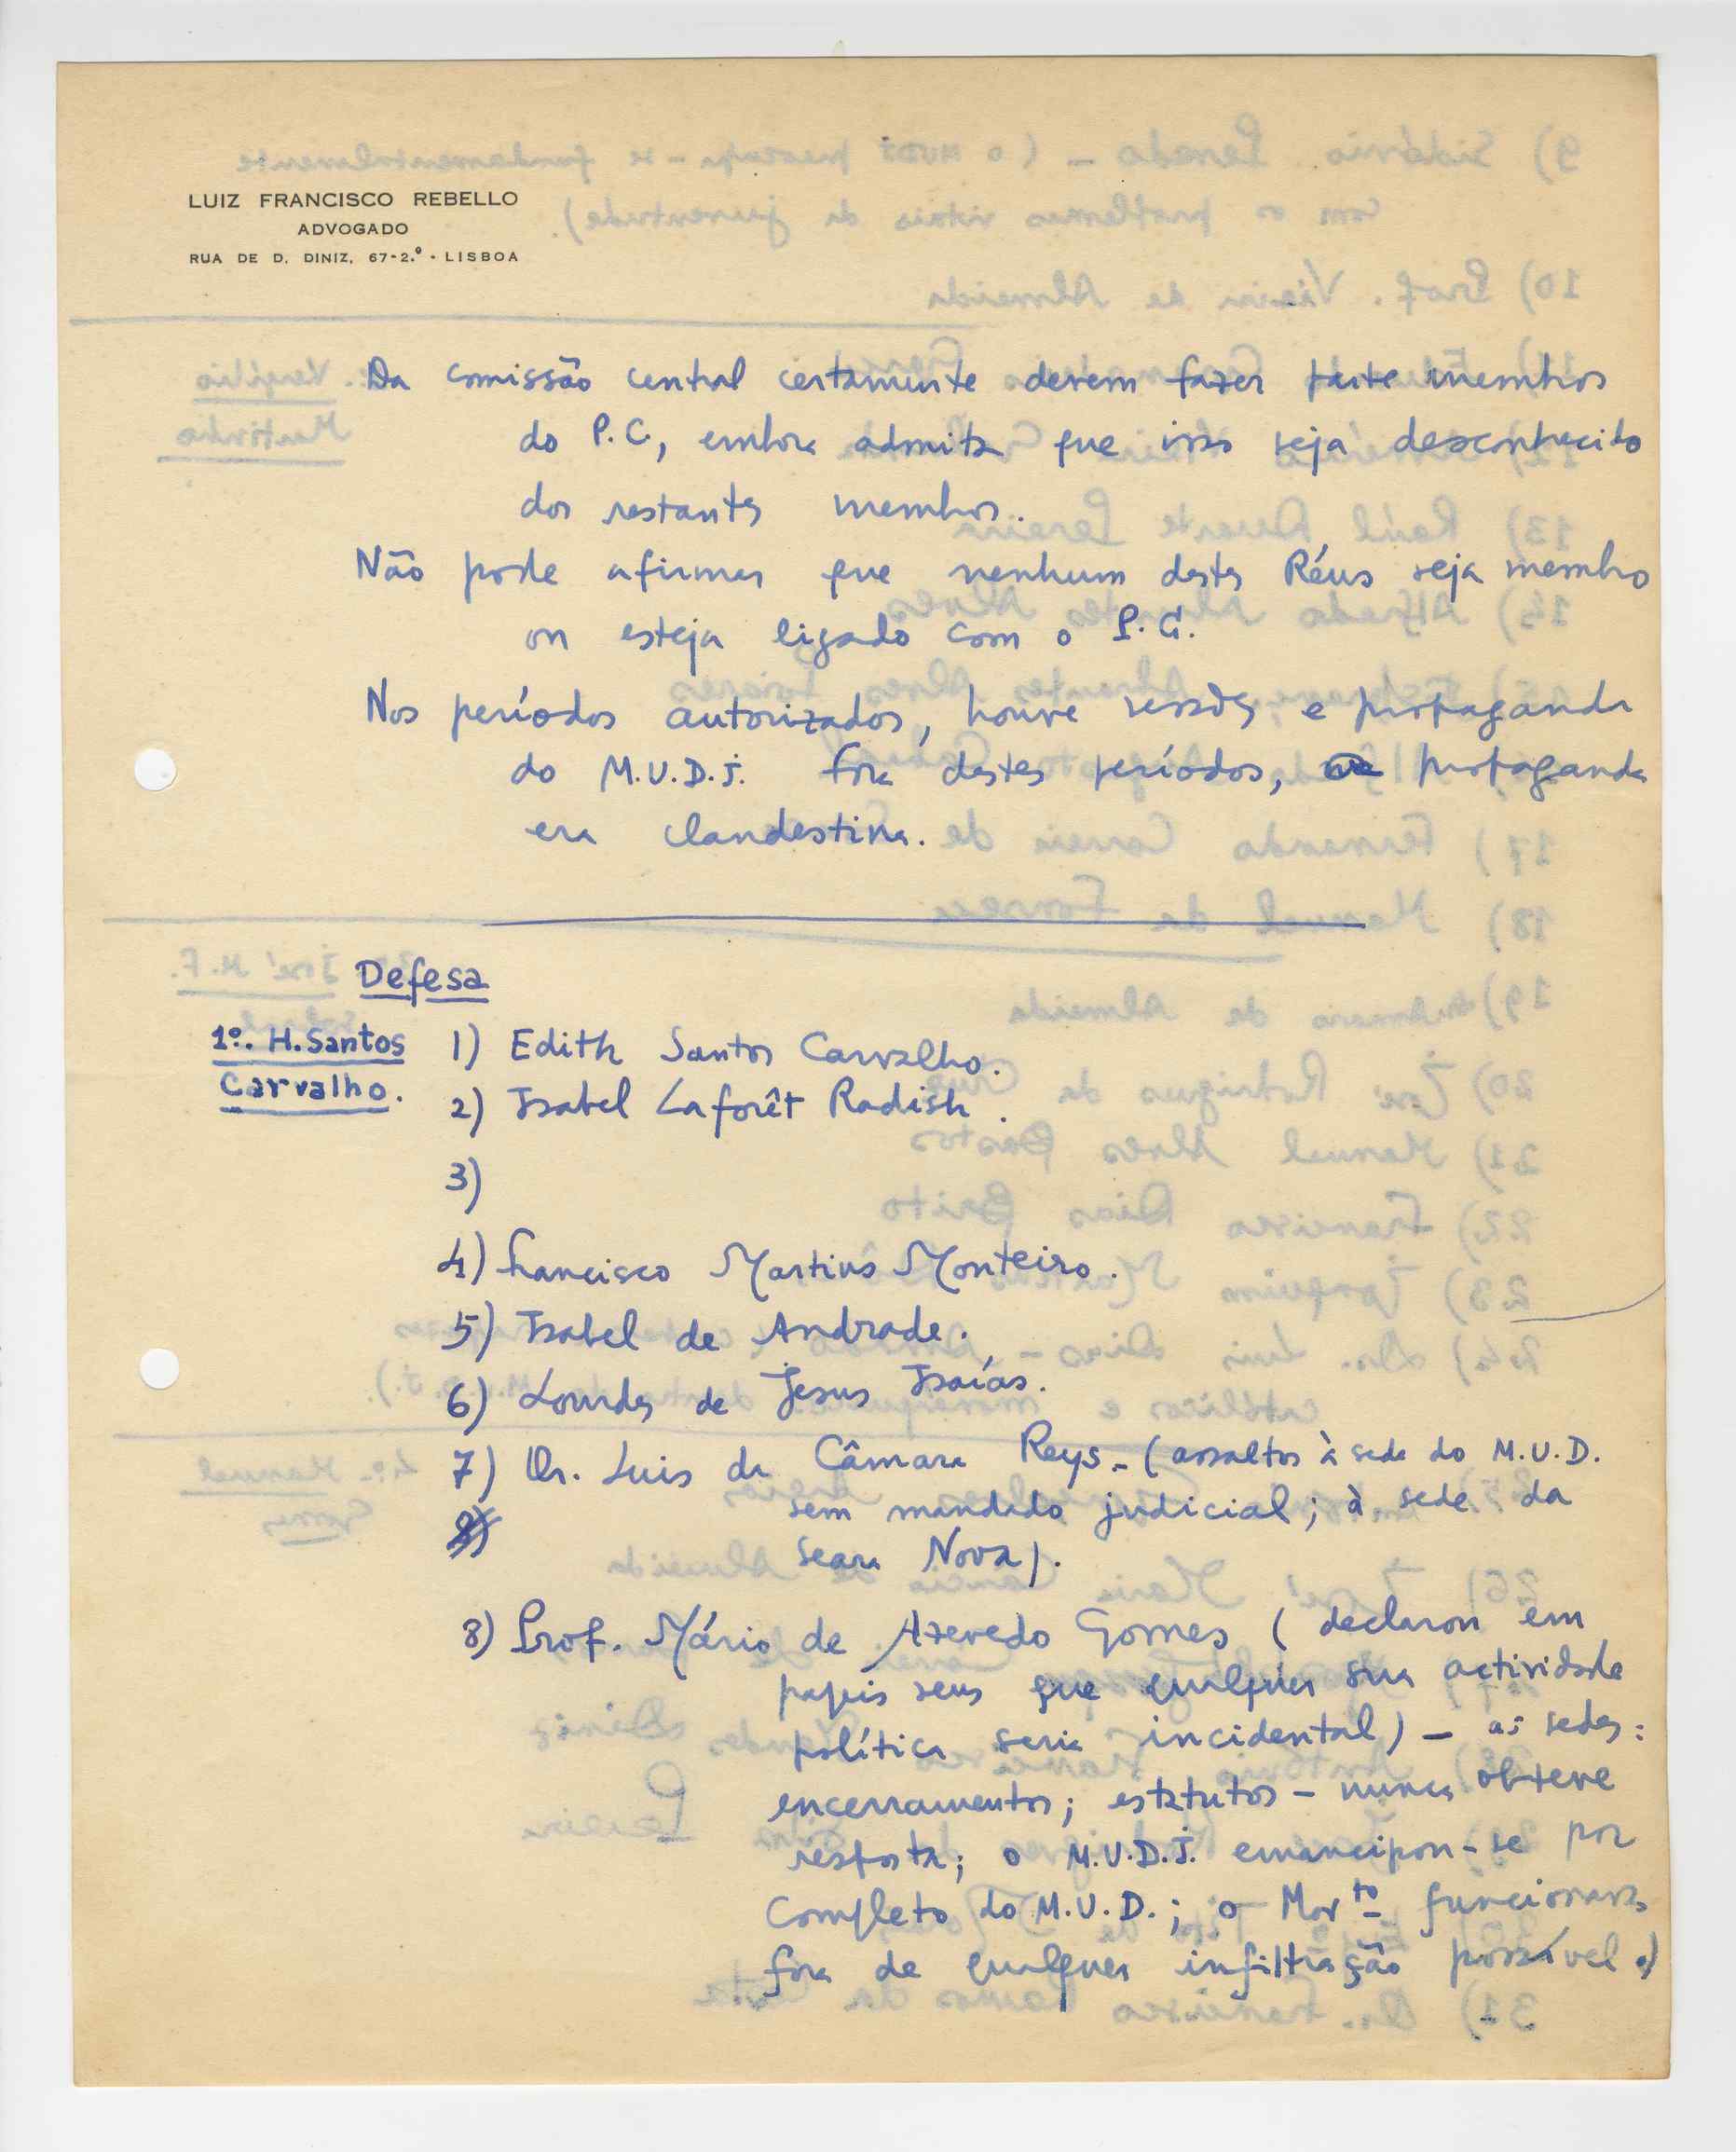 LUIZ FRANCISCO REBELLO
ADVOGADO
RUA DE D. DINIZ, 67-2.º - LISBOA
Da comissão central certamente devem fazer parte membros
do P.C., embora admita que isso seja desconhecido
dos restantes membros.
Não pode afirmar que nenhum destes Réus seja membro
ou esteja ligado com o P.C.
Nos períodos autorizados, houve sessões e propaganda
do M.U.D.J. Fora destes períodos, a propaganda
era clandestina.
Defesa
1º. H. Santos
Carvalho.
1) Edith Santos Carvalho.
2) Isabel Laforêt Radish.
3)
4) Francisco Martins Monteiro.
5) Isabel de Andrade.
6) Lourdes de Jesus Isaías.
7) Dr. Luis da Câmara Reys - (assaltos à sede do M.U.D.
sem mandado judicial; à sede da
Seara Nova).
8) Prof. Mário de Azevedo Gomes (declarou em
papeis seus que qualquer sua actividade
política seria incidental) - as sedes:
encerramentos; estatutos - nunca obteve
resposta; o M.U.D.J. emancipou-se por
completo do M.U.D.; o Movto funcionava
fora de qualquer infiltração possível.)